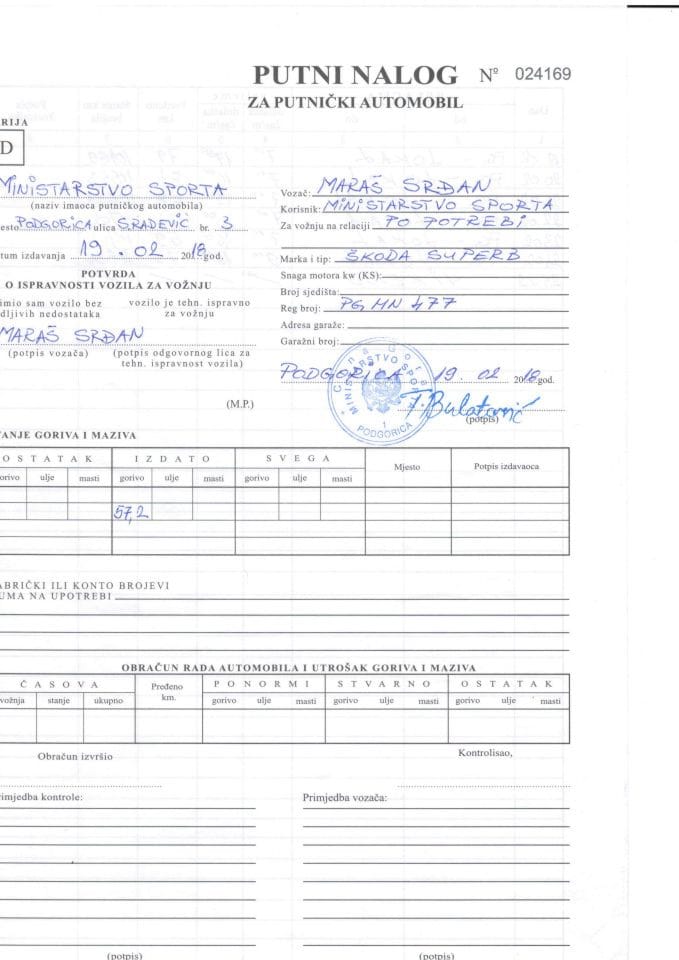 PUTNI NALOG Nº 024169
ZA PUTNIČKI AUTOMOBIL
RIJA
D
MINISTARSTVO SPORTA
(naziv imaoca putničkog automobila)
esto PODGORICA ulica S.RADEVIĆ br. 3
tum izdavanja 19. 02 2018 god.
POTVRDA
O ISPRAVNOSTI VOZILA ZA VOŽNJU
imio sam vozilo bez vozilo je tehn. ispravno
dljivih nedostataka za vožnju
MARAŠ SRĐAN
(potpis vozača) (potpis odgovornog lica za
tehn. ispravnost vozila)
(M.P.)
Vozač: MARAŠ SRĐAN
Korisnik: MINISTARSTVO SPORTA
Za vožnju na relaciji PO POTREBI
Marka i tip: ŠKODA SUPERB
Snaga motora kw (KS):
Broj sjedišta:
Reg broj: PG MN 477
Adresa garaže:
Garažni broj:
PODGORICA 19 02 2018 god.
Crna Gora
MINISTARSTVO SPORTA
1
PODGORICA
Bulatović
(potpis)
TANJE GORIVA I MAZIVA
OSTATAK IZDATO SVEGA Mjesto Potpis izdavaoca
orivo ulje masti gorivo ulje masti gorivo ulje masti
57,2
ABRIČKI ILI KONTO BROJEVI
UMA NA UPOTREBI
OBRAČUN RADA AUTOMOBILA I UTROŠAK GORIVA I MAZIVA
ČASOVA Pređeno km. PO NORMI STVARNO OSTATAK
vožnja stanje ukupno gorivo ulje masti gorivo ulje masti gorivo ulje masti
Obračun izvršio Kontrolisao,
rimjedba kontrole: Primjedba vozača:
(potpis) (potpis)